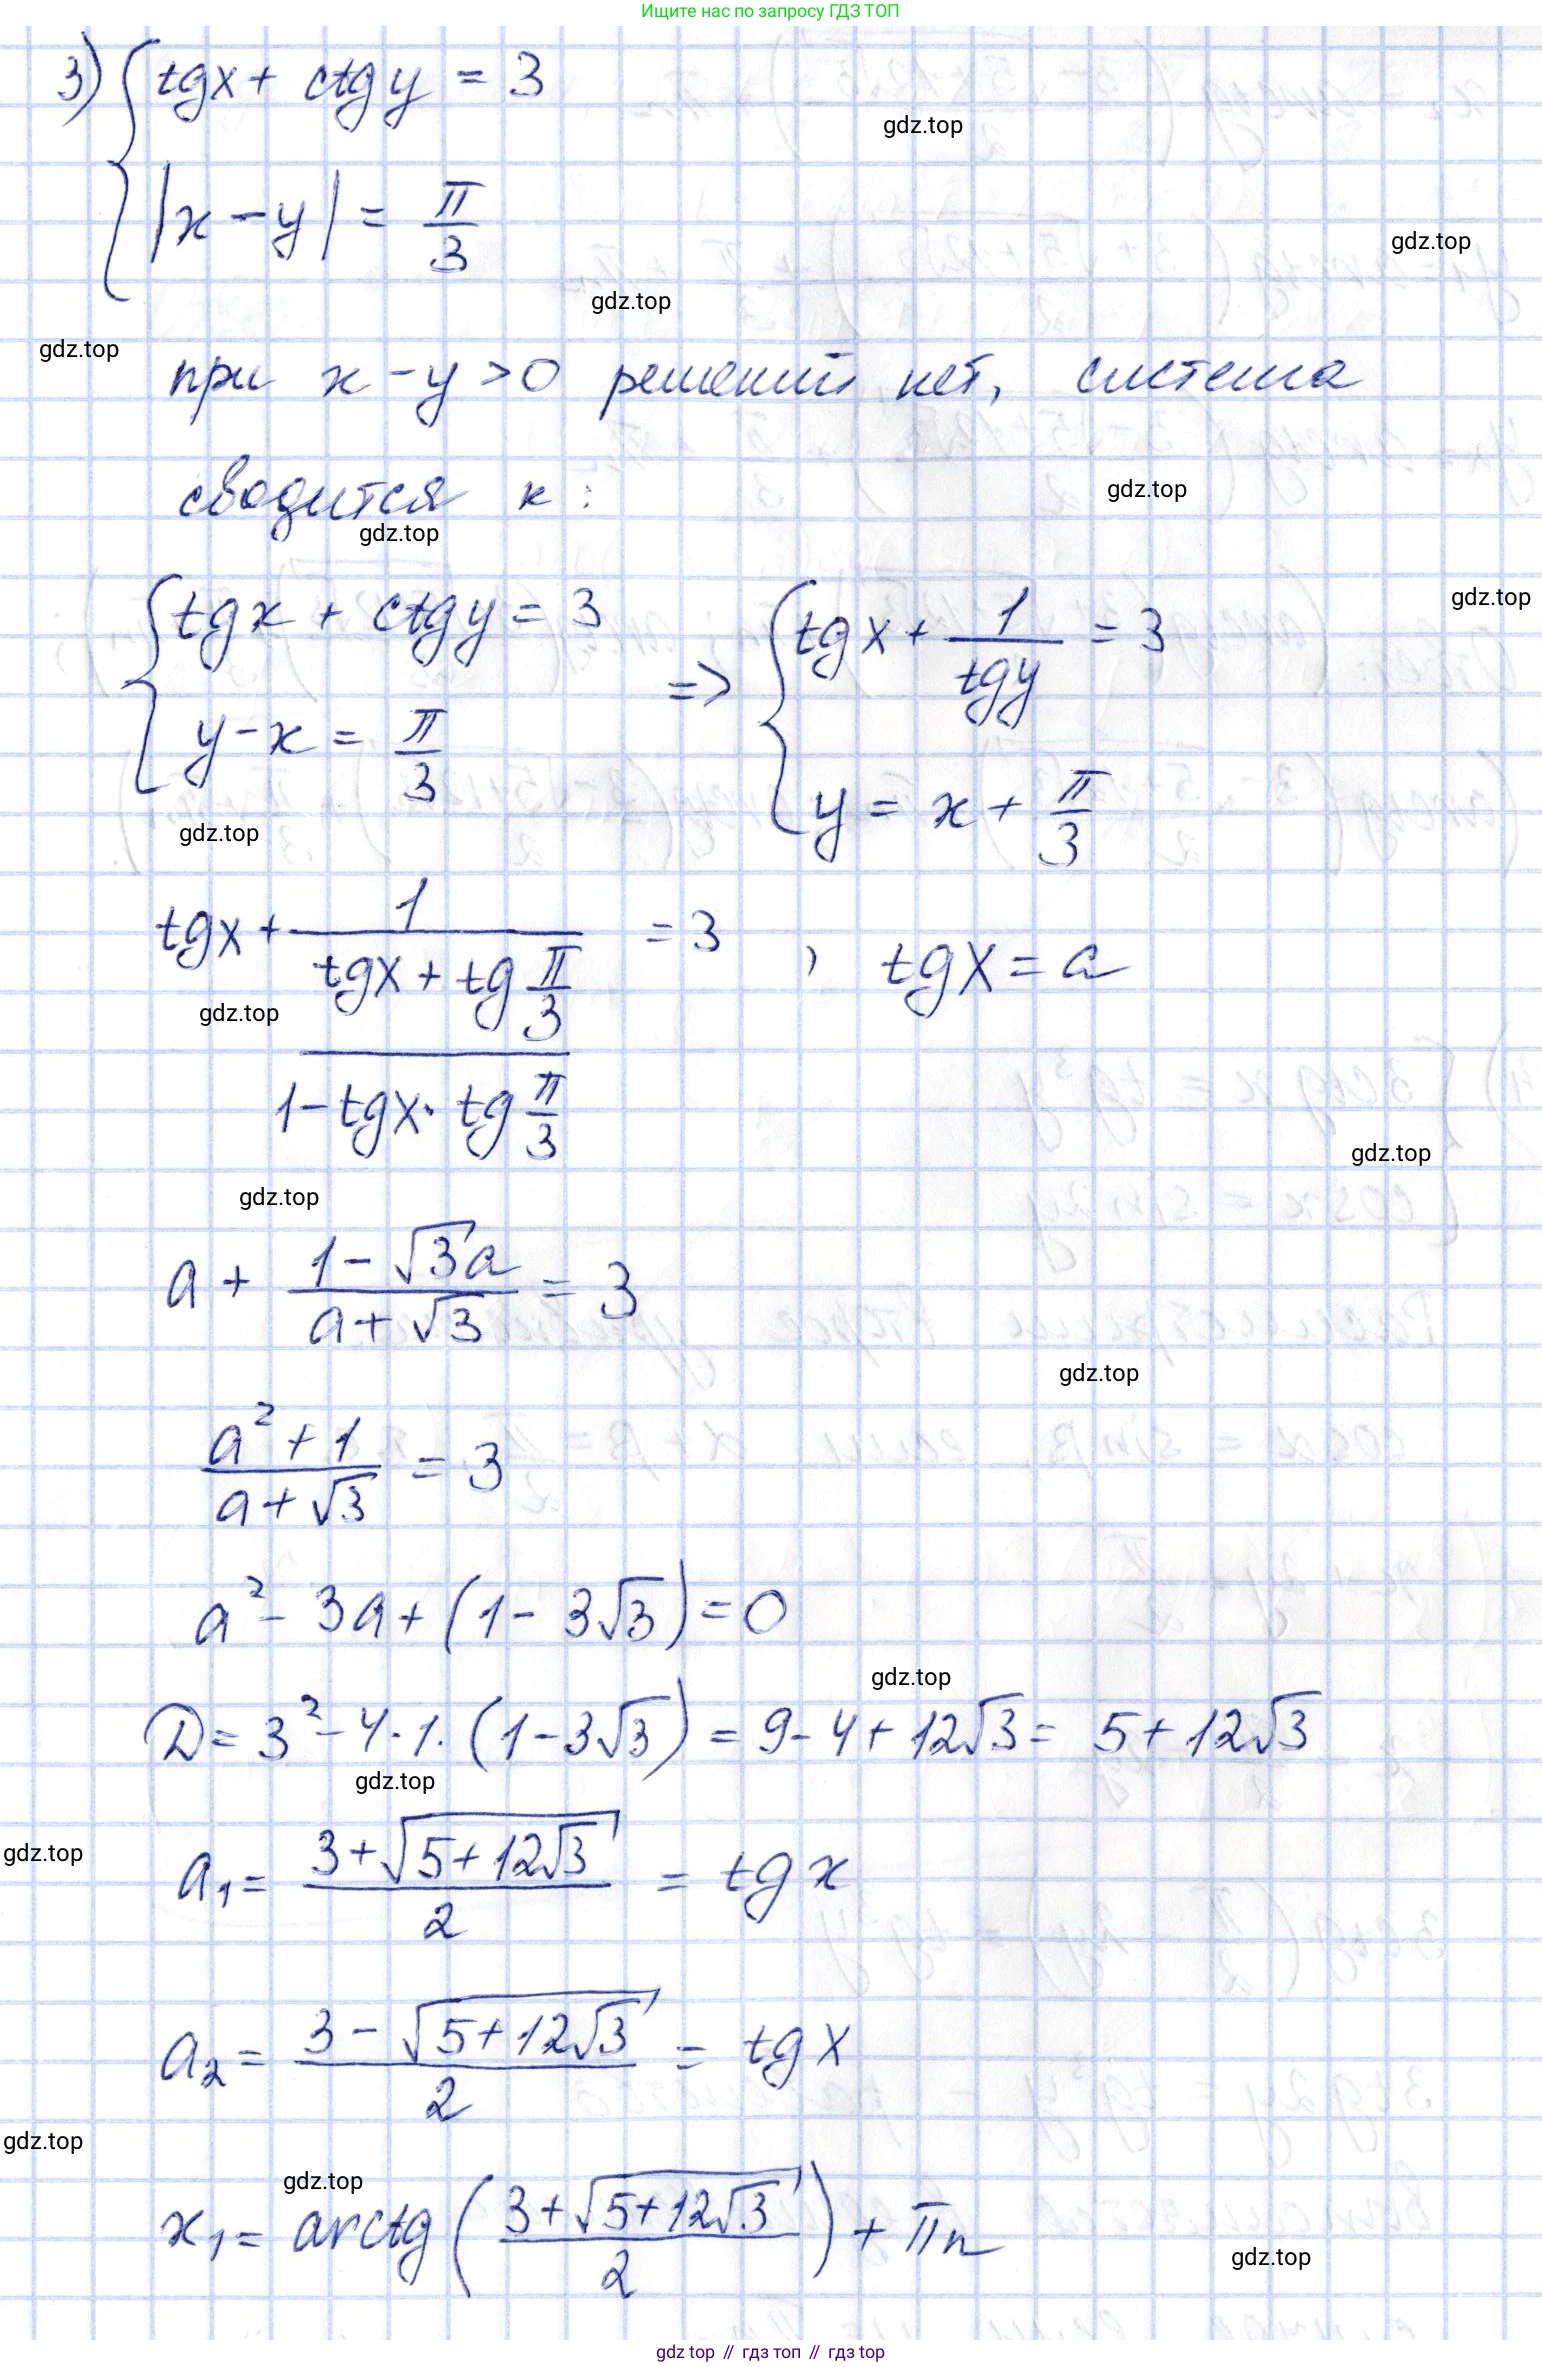 Ищите нас по запросу ГДЗ ТОП
3) { tgx + ctgy = 3
|x - y| = π/3
gdz.top
gdz.top
gdz.top
gdz.top
при x - y > 0 решений нет, система
сводится к:
gdz.top
gdz.top
{ tgx + ctgy = 3 => { tgx + 1/tgy = 3
gdz.top
y - x = π/3 y = x + π/3
gdz.top
tgx + 1/((tgx + tg π/3)/(1 - tgx · tg π/3)) = 3 , tgx = a
gdz.top
gdz.top
gdz.top
a + (1 - √3a)/(a + √3) = 3
gdz.top
(a² + 1)/(a + √3) = 3
a² - 3a + (1 - 3√3) = 0
gdz.top
D = 3² - 4·1·(1 - 3√3) = 9 - 4 + 12√3 = 5 + 12√3
gdz.top
gdz.top
a₁ = (3 + √(5 + 12√3))/2 = tgx
a₂ = (3 - √(5 + 12√3))/2 = tgx
gdz.top
gdz.top
x₁ = arctg((3 + √(5 + 12√3))/2) + πn
gdz.top
gdz top // гдз топ // гдз top